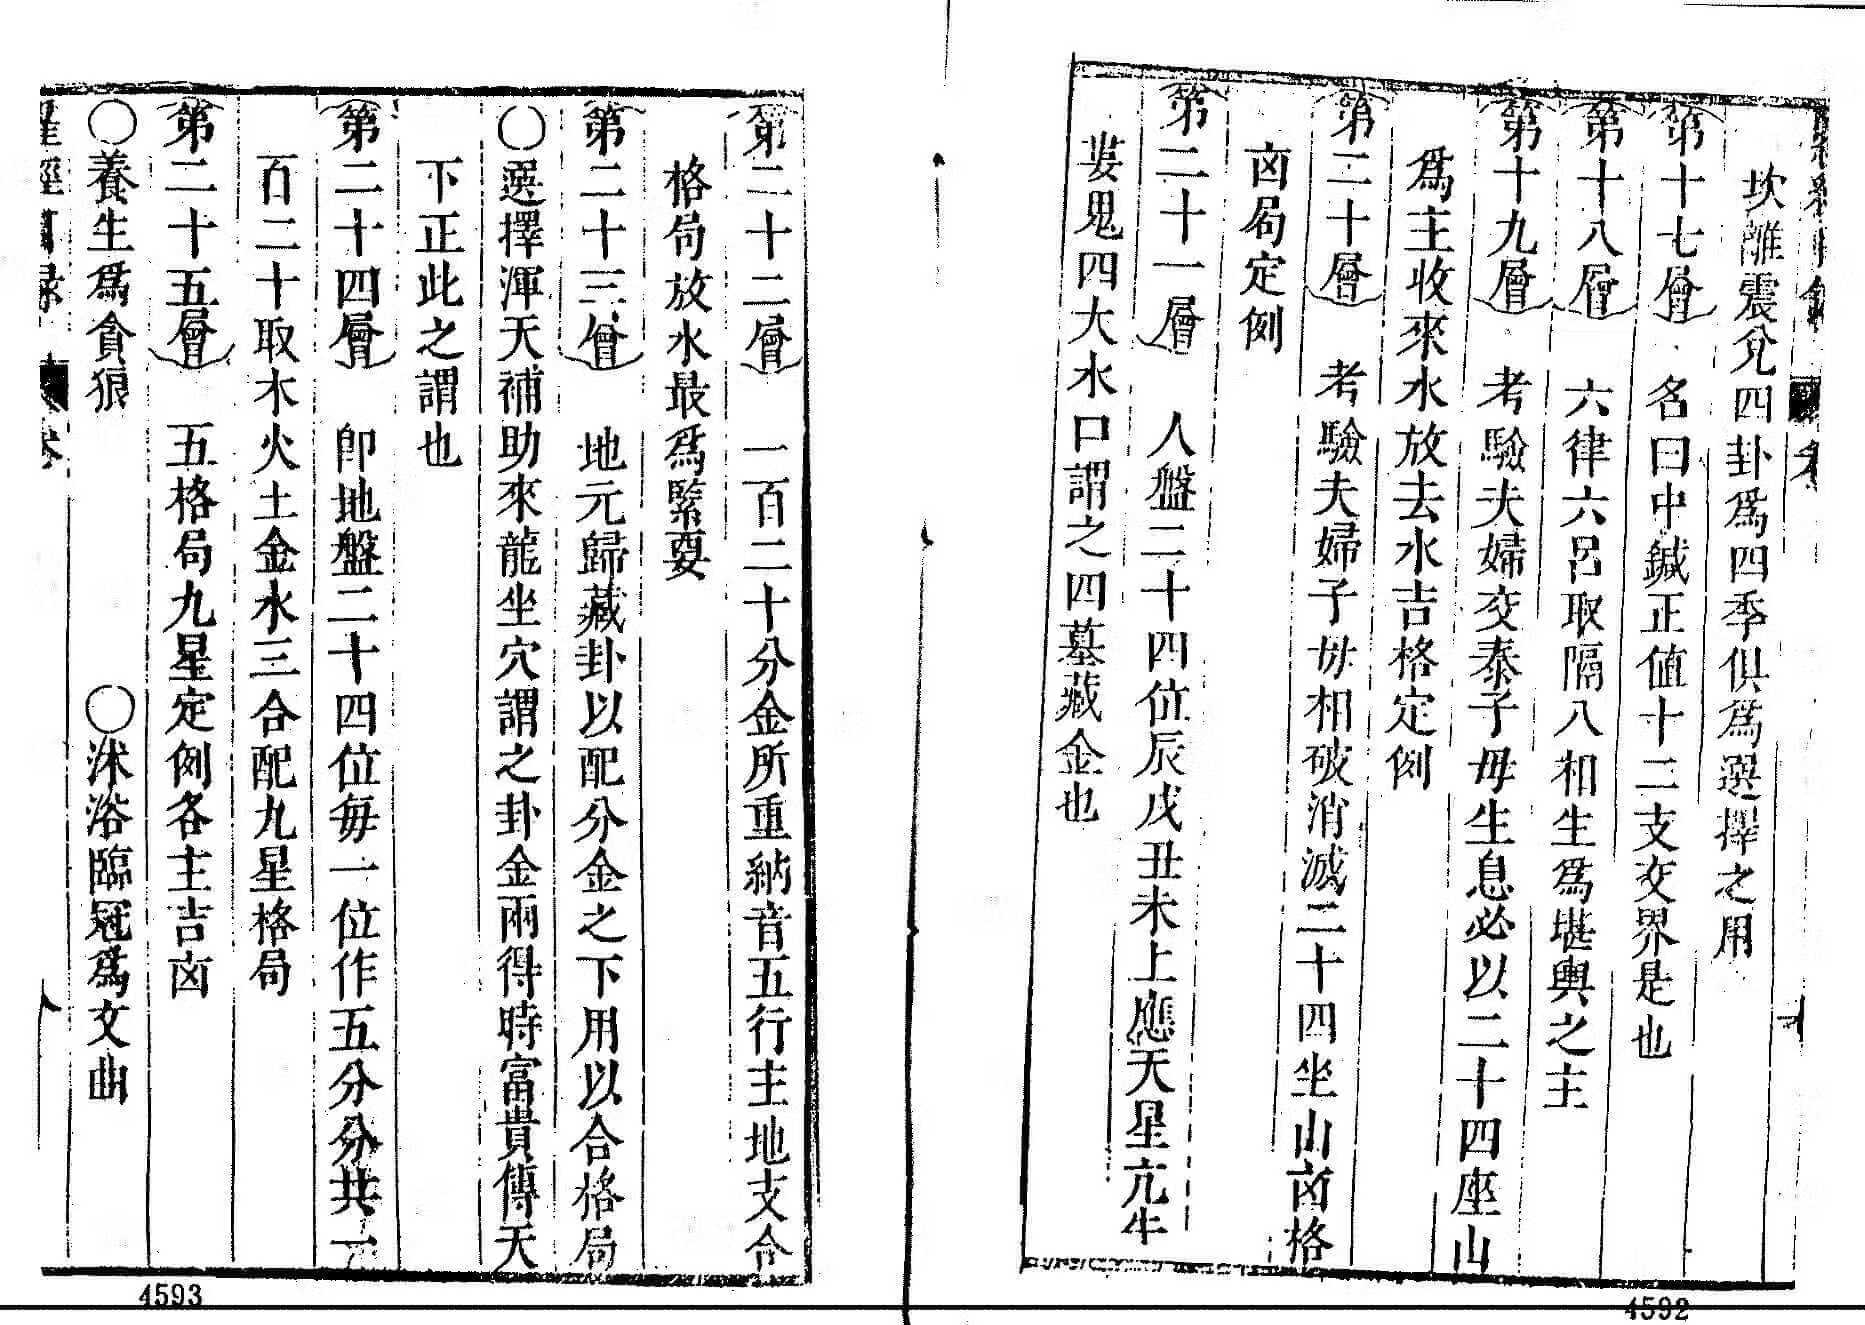 坎離震兌四卦爲四季俱爲選擇之用
第十七層 名曰中鍼正值十二支交界是也
第十八層 六律六呂取隔八相生爲堪輿之主
第十九層 考驗夫婦交泰子母生息必以二十四座山
爲主收來水放去水吉格定例
第二十層 考驗夫婦子母相破消滅二十四坐山㐫格
㐫局定例
第二十一層 人盤二十四位辰戌丑未上應天星亢牛
婁鬼四大水口謂之四墓藏金也
4592
第二十二層 一百二十分金所重納音五行主地支合
格局放水最爲緊要
第二十三層 地元歸藏卦以配分金之下用以合格局
○選擇渾天補助來龍坐穴謂之卦金兩得時富貴傳天
下正此之謂也
第二十四層 卽地盤二十四位每一位作五分分共一
百二十取木火土金水三合配九星格局
第二十五層 五格局九星定例各主吉㐫
○養生爲貪狼 ○沐浴臨冠爲文曲
4593